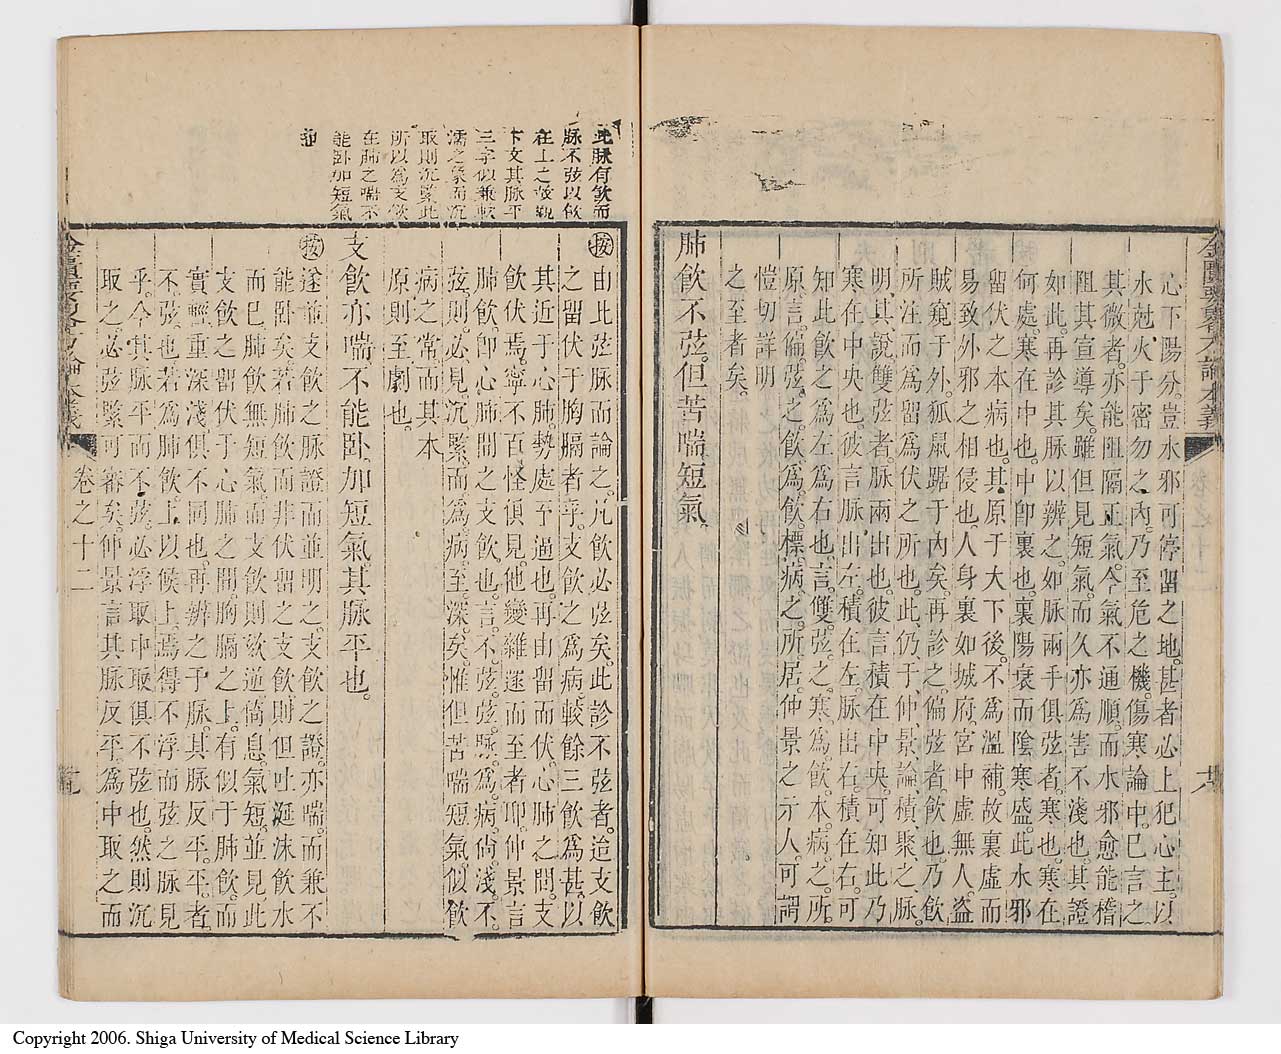 金匱要畧方論本義
卷之十二
六
心下陽分。豈水邪可停留之地。甚者必上犯心主。以
水尅火于密勿之內。乃至危之機。傷寒論中。已言之
其微者。亦能阻隔正氣。今氣不通順。而水邪愈能稽
阻其宣導矣。雖但見短氣。而久亦為害不淺也。其證
如此。再診其脈以辨之。如脈兩手俱弦者。寒也。寒在
何處。寒在中也。中卽裏也。裏陽衰而陰寒盛。此水邪
留伏之本病也。其原于大下後。不為溫補。故裏虛而
易致外邪之相侵也。人身裏如城府。宮中虛無人。盜
賊窺于外。狐鼠踞于內矣。再診之。偏弦者。飲也。乃飲
所注而為留為伏之所也。此仍于仲景論積聚之脈。
明其說。雙弦者。脈兩出也。彼言積在中央。可知此乃
寒在中央也。彼言脈出左。積在左。脈出右。積在右。可
知此飲之為左為右也。言雙弦之寒為飲本病之所
原。言偏弦之飲為飲標病之所居。仲景之示人。可謂
愷切詳明
之至者矣。
肺飲不弦。但苦喘短氣。
此脈有飲而
脈不弦以飲
在上之故觀
下文其脈平
三字似兼軟
濡之象而沉
取則沉緊此
所以為支飲
在肺之喘不
能卧加短氣
也
按由此弦脈而論之。凡飲必弦矣。此診不弦者。迨支飲
之留伏于胸膈者乎。支飲之為病。較餘三飲為甚。以
其近于心肺。勢處至逼也。再由留而伏。心肺之間。支
飲伏焉。寧不百怪俱見。他變雜遝而至者卽仲景言
肺飲。卽心肺間之支飲也。言不弦。弦脈為病。尚淺。不
弦。則必見沉緊。而為病至深矣。惟但苦喘短氣。似飲
病之常而其本
原則至劇也。
支飲亦喘。不能卧。加短氣。其脈平也。
按遂並支飲之脈證而並明之。支飲之證。亦喘。而兼不
能卧矣。若肺飲而非伏留之支飲。則但吐涎沫飲水
而已。肺飲無短氣。而支飲則欬逆倚息。氣短。並見。此
支飲之留伏于心肺之間。胸膈之上。有似于肺飲。而
實輕重深淺俱不同也。再辨之于脈。其脈反平。平者
不弦也。若為肺飲上。以候上。焉得不浮而弦之脈見
乎。今其脈平而不弦。必浮取中取俱不弦也。然則沉
取之。必弦緊可審矣。仲景言其脈反平。為中取之而
金匱要畧方論本義
卷之十二